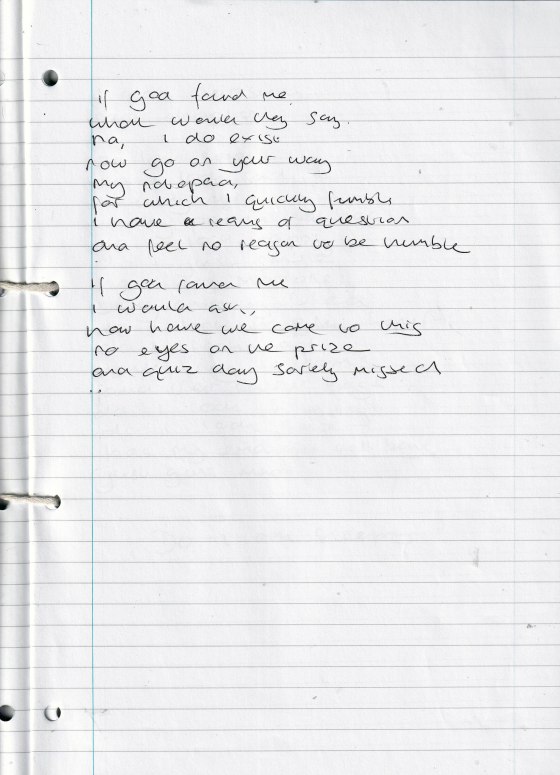 if god found me.
what would they say.
ha, i do exist
now go on your way
my notepad,
for which i quickly fumble
i have reams of question
and feel no reason to be humble
if god found me
i would ask,
how have we come to this
no eyes on the prize
and quiz day sorely missed